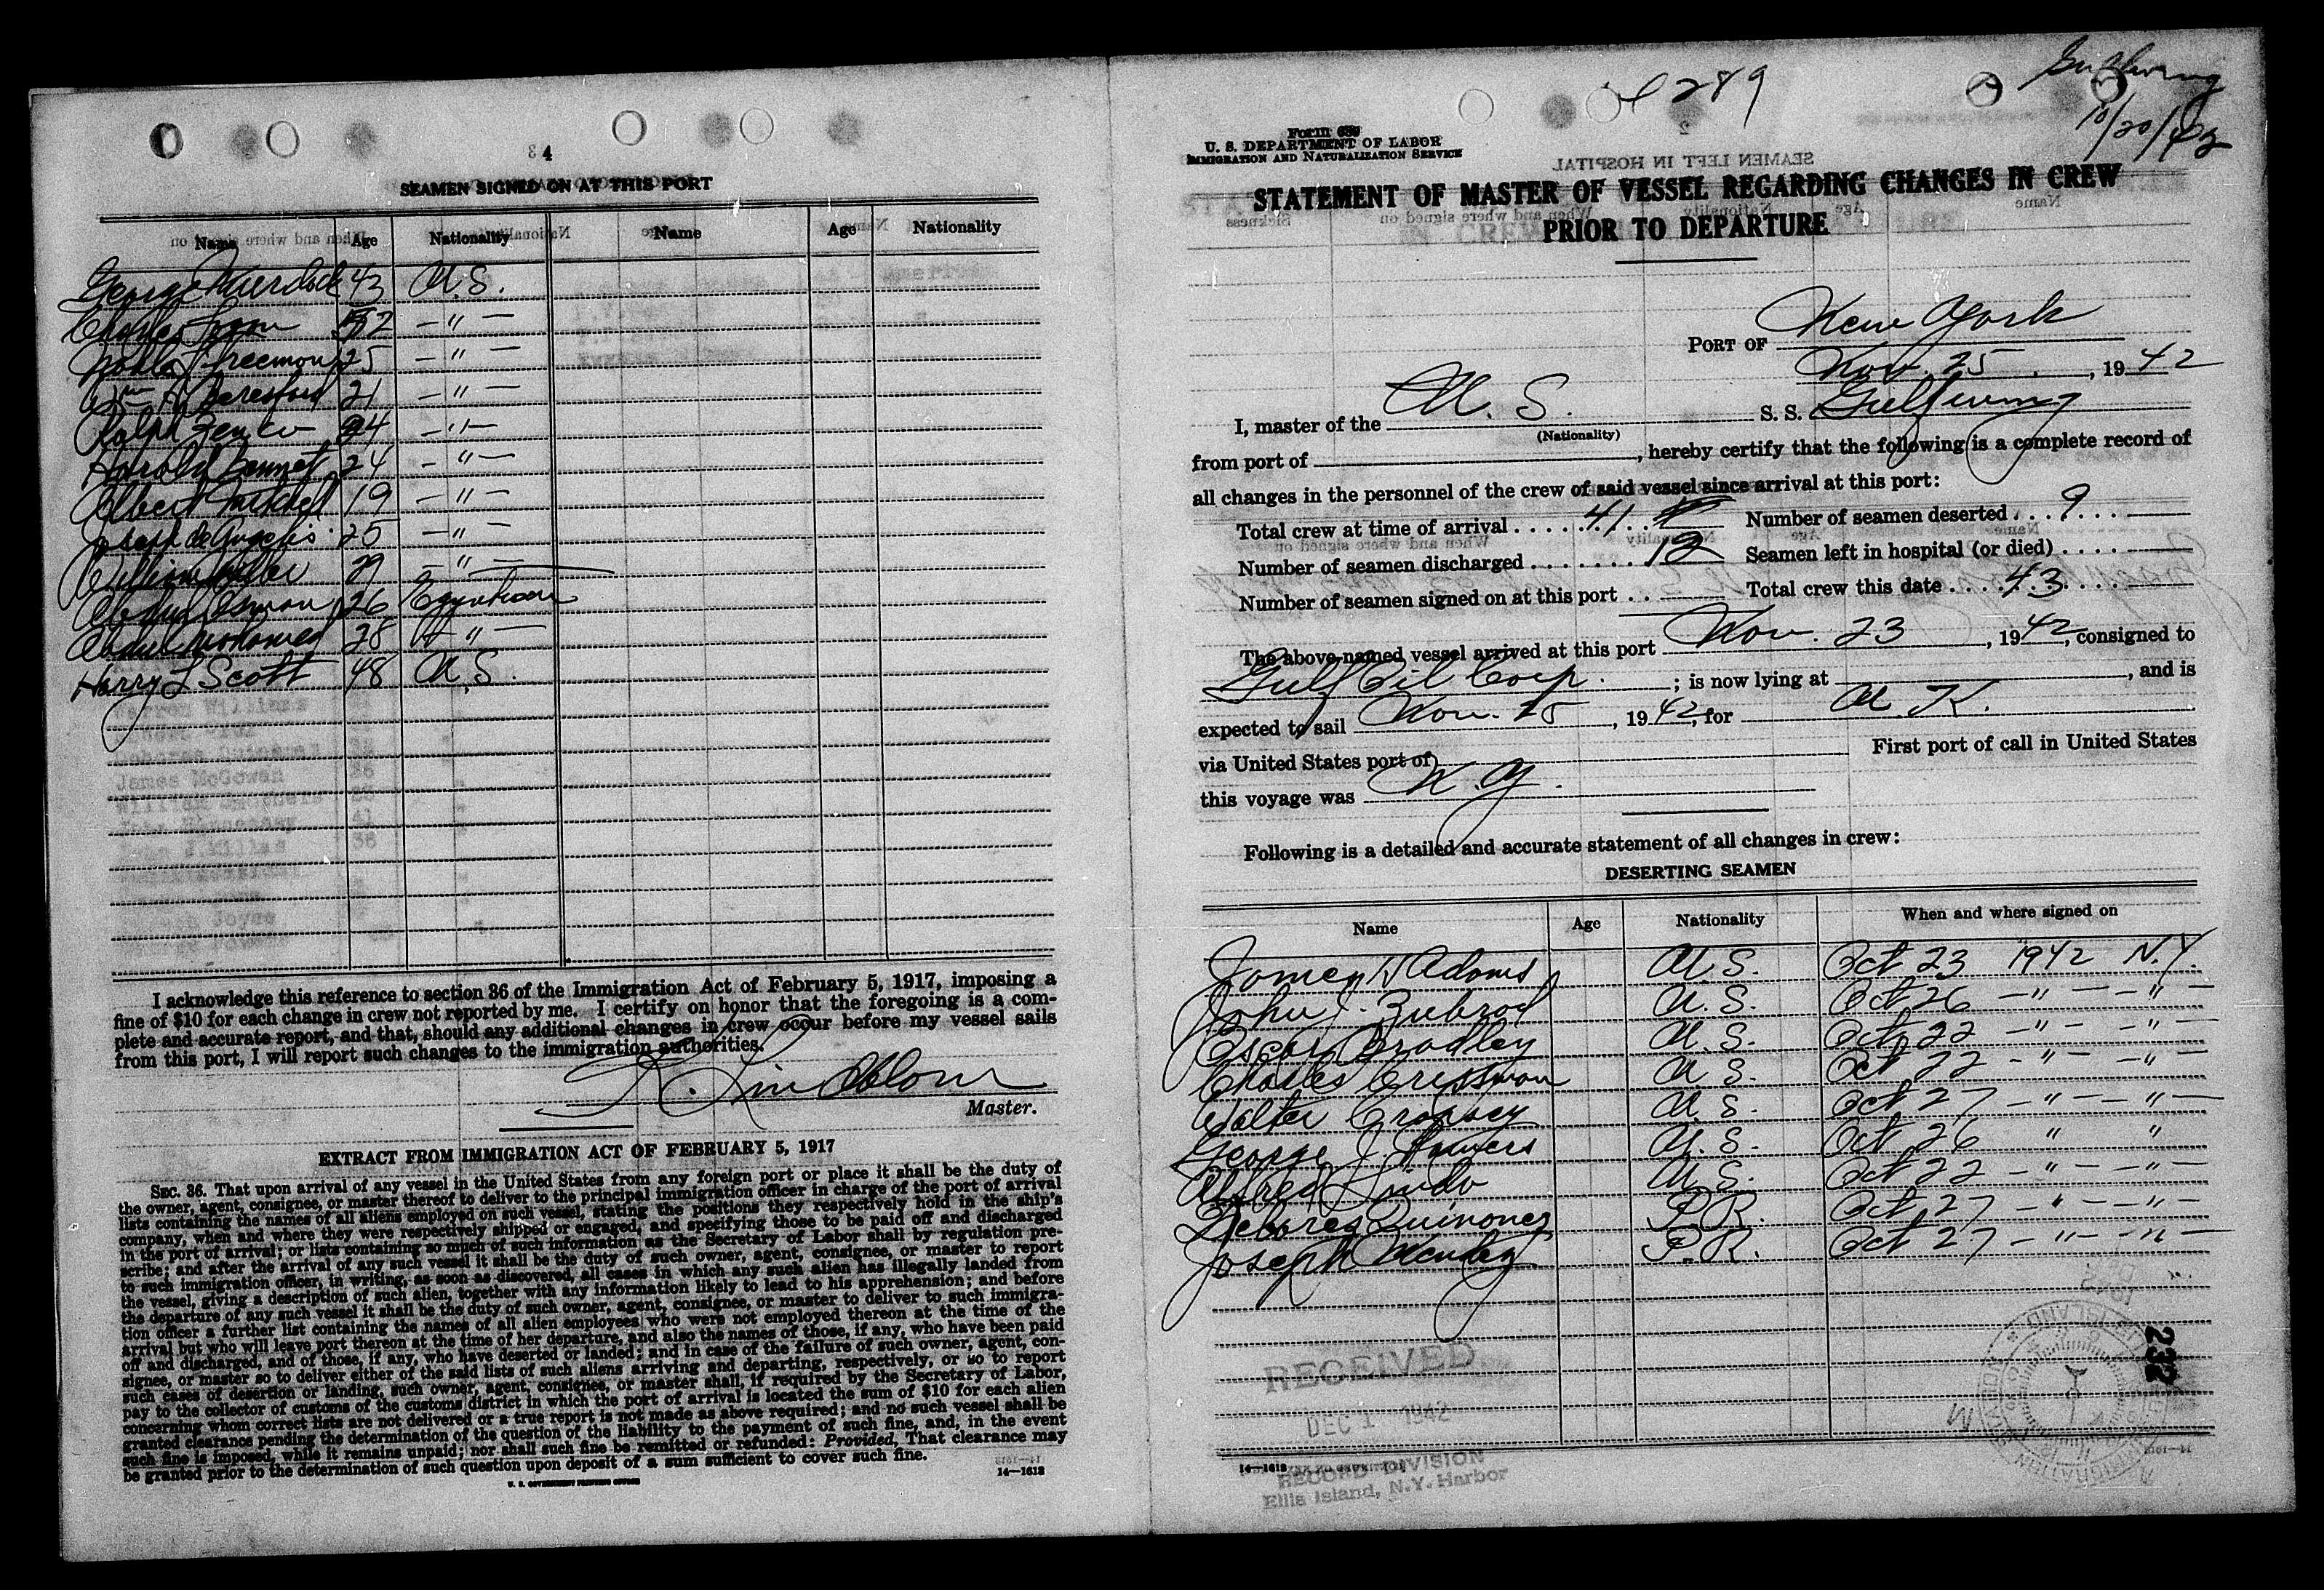 4
SEAMEN SIGNED ON AT THIS PORT
Name Age Nationality Name Age Nationality
George Murdock 43 U.S.
Charles 52 — " —
Noble Freemon 25 — " —
Wm Beresford 21 — " —
Ralph 24 — " —
Harold Bennet 24 — " —
Albert Mitchell 19 — " —
Joseph de Angelis 25 — " —
William Miller 29 — " —
Abdul Osman 26 Egyptian
Abdul Mohamed 28 — " —
Harry L Scott 48 U.S.
I acknowledge this reference to section 36 of the Immigration Act of February 5, 1917, imposing a
fine of $10 for each change in crew not reported by me. I certify on honor that the foregoing is a com-
plete and accurate report, and that, should any additional changes in crew occur before my vessel sails
from this port, I will report such changes to the immigration authorities.
Master.
EXTRACT FROM IMMIGRATION ACT OF FEBRUARY 5, 1917
SEC. 36. That upon arrival of any vessel in the United States from any foreign port or place it shall be the duty of
the owner, agent, consignee, or master thereof to deliver to the principal immigration officer in charge of the port of arrival
lists containing the names of all aliens employed on such vessel, stating the positions they respectively hold in the ship's
company, when and where they were respectively shipped or engaged, and specifying those to be paid off and discharged
in the port of arrival; or lists containing so much of such information as the Secretary of Labor shall by regulation pre-
scribe; and after the arrival of any such vessel it shall be the duty of such owner, agent, consignee, or master to report
to such immigration officer, in writing, as soon as discovered, all cases in which any such alien has illegally landed from
the vessel, giving a description of such alien, together with any information likely to lead to his apprehension; and before
the departure of any such vessel it shall be the duty of such owner, agent, consignee, or master to deliver to such immigra-
tion officer a further list containing the names of all alien employees who were not employed thereon at the time of the
arrival but who will leave port thereon at the time of her departure, and also the names of those, if any, who have been paid
off and discharged, and of those, if any, who have deserted or landed; and in case of the failure of such owner, agent, con-
signee, or master so to deliver either of the said lists of such aliens arriving and departing, respectively, or so to report
such cases of desertion or landing, such owner, agent, consignee, or master shall, if required by the Secretary of Labor,
pay to the collector of customs of the customs district in which the port of arrival is located the sum of $10 for each alien
concerning whom correct lists are not delivered or a true report is not made as above required; and no such vessel shall be
granted clearance pending the determination of the question of the liability to the payment of such fine, and, in the event
such fine is imposed, while it remains unpaid; nor shall such fine be remitted or refunded: Provided, That clearance may
be granted prior to the determination of such question upon deposit of a sum sufficient to cover such fine.
U. S. GOVERNMENT PRINTING OFFICE
14—1618
289
Gulfwing
10/20/42
Form 689
U. S. DEPARTMENT OF LABOR
IMMIGRATION AND NATURALIZATION SERVICE
STATEMENT OF MASTER OF VESSEL REGARDING CHANGES IN CREW
PRIOR TO DEPARTURE
PORT OF New York
Nov. 25, 1942
I, master of the U. S. S. S. Gulfwing
(Nationality)
from port of , hereby certify that the following is a complete record of
all changes in the personnel of the crew of said vessel since arrival at this port:
Total crew at time of arrival 41 Number of seamen deserted 9
Number of seamen discharged 12 Seamen left in hospital (or died)
Number of seamen signed on at this port Total crew this date 43
The above-named vessel arrived at this port Nov. 23, 1942, consigned to
Gulf Oil Corp. ; is now lying at , and is
expected to sail Nov. 25, 1942, for U. K.
via United States port of First port of call in United States
this voyage was N. Y.
Following is a detailed and accurate statement of all changes in crew:
DESERTING SEAMEN
Name Age Nationality When and where signed on
James H Adams U.S. Oct 23 1942 N.Y.
John J. Zubrod U.S. Oct 26 — " — — " —
Oscar Bradley U.S. Oct 22 — " — — " —
Charles Cressman U.S. Oct 22 — " — — " —
Walter Cropsey U.S. Oct 27 — " — — " —
George J. Powers U.S. Oct 26 " "
Alfred Lindo U.S. Oct 22 — " — — " —
Delores Quinones P.R. Oct 27 — " — — " —
Joseph P.R. Oct 27 — " — — " —
232
RECEIVED
DEC 1 1942
RECORD DIVISION
Ellis Island, N.Y. Harbor
14—1618